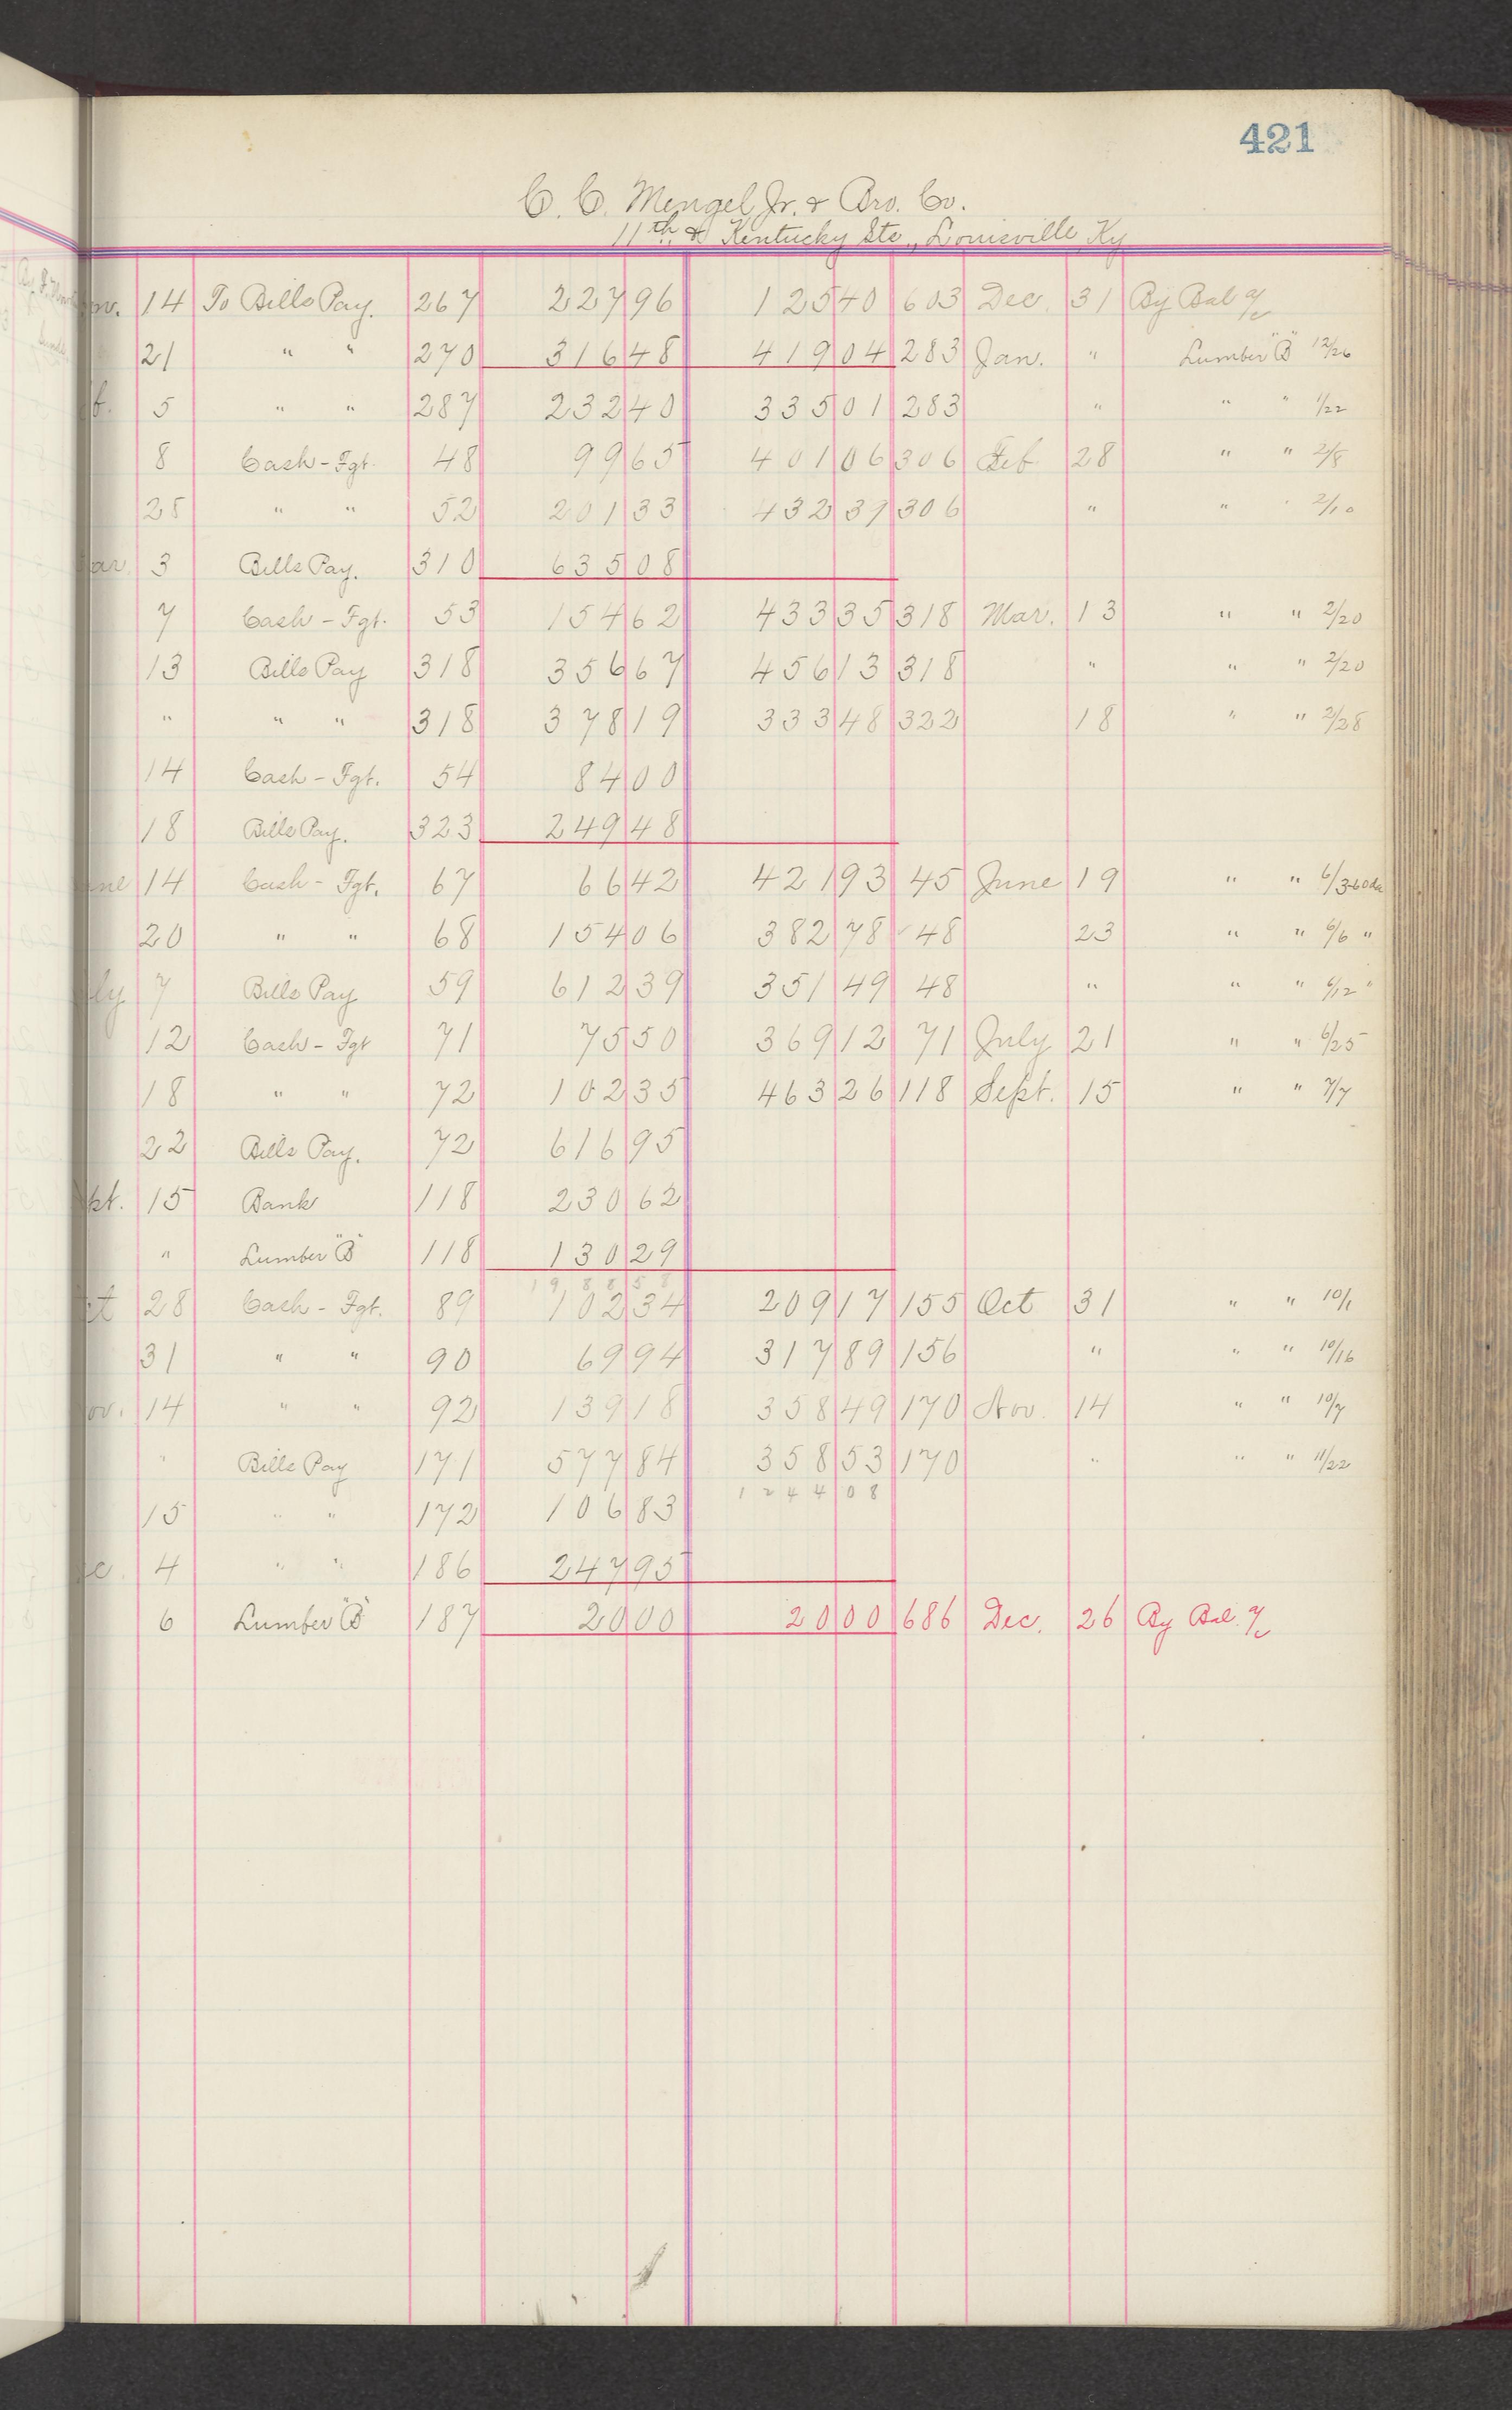 421
C. C. Mengel Jr. & Bro. Co.
11th & Kentucky Sts., Louisville, Ky
ov. 14 To Bills Pay. 267 227 96 125 40 603 Dec. 31 By Bal a/c
21 " " 270 316 48 419 04 283 Jan. " Lumber "B" 12/26
b. 5 " " 287 232 40 335 01 283 " " " 1/22
8 Cash - Fgt. 48 99 65 401 06 306 Feb. 28 " " 2/8
28 " " 52 201 33 432 39 306 " " " 2/10
ar. 3 Bills Pay. 310 635 08
7 Cash - Fgt. 53 154 62 433 35 318 Mar. 13 " " 2/20
13 Bills Pay 318 356 67 456 13 318 " " " 2/20
" " " 318 378 19 333 48 322 18 " " 2/28
14 Cash - Fgt. 54 84 00
18 Bills Pay. 323 249 48
ne 14 Cash - Fgt. 67 66 42 421 93 45 June 19 " " 6/3-60da
20 " " 68 154 06 382 78 48 23 " " 6/6 "
ly 7 Bills Pay 59 612 39 351 49 48 " " " 6/12 "
12 Cash - Fgt 71 75 50 369 12 71 July 21 " " 6/25
18 " " 72 102 35 463 26 118 Sept. 15 " " 7/7
22 Bills Pay. 72 616 95
pt. 15 Bank 118 230 62
" Lumber "B" 118 130 29
1988 58
ct 28 Cash - Fgt. 89 102 34 209 17 155 Oct 31 " " 10/1
31 " " 90 69 94 317 89 156 " " " 10/16
ov. 14 " " 92 139 18 358 49 170 Nov. 14 " " 10/7
" Bills Pay 171 577 84 358 53 170 " " " 11/22
1244 08
15 " " 172 106 83
ec. 4 " " 186 247 95
6 Lumber "B" 187 20 00 20 00 686 Dec. 26 By Bal. a/c